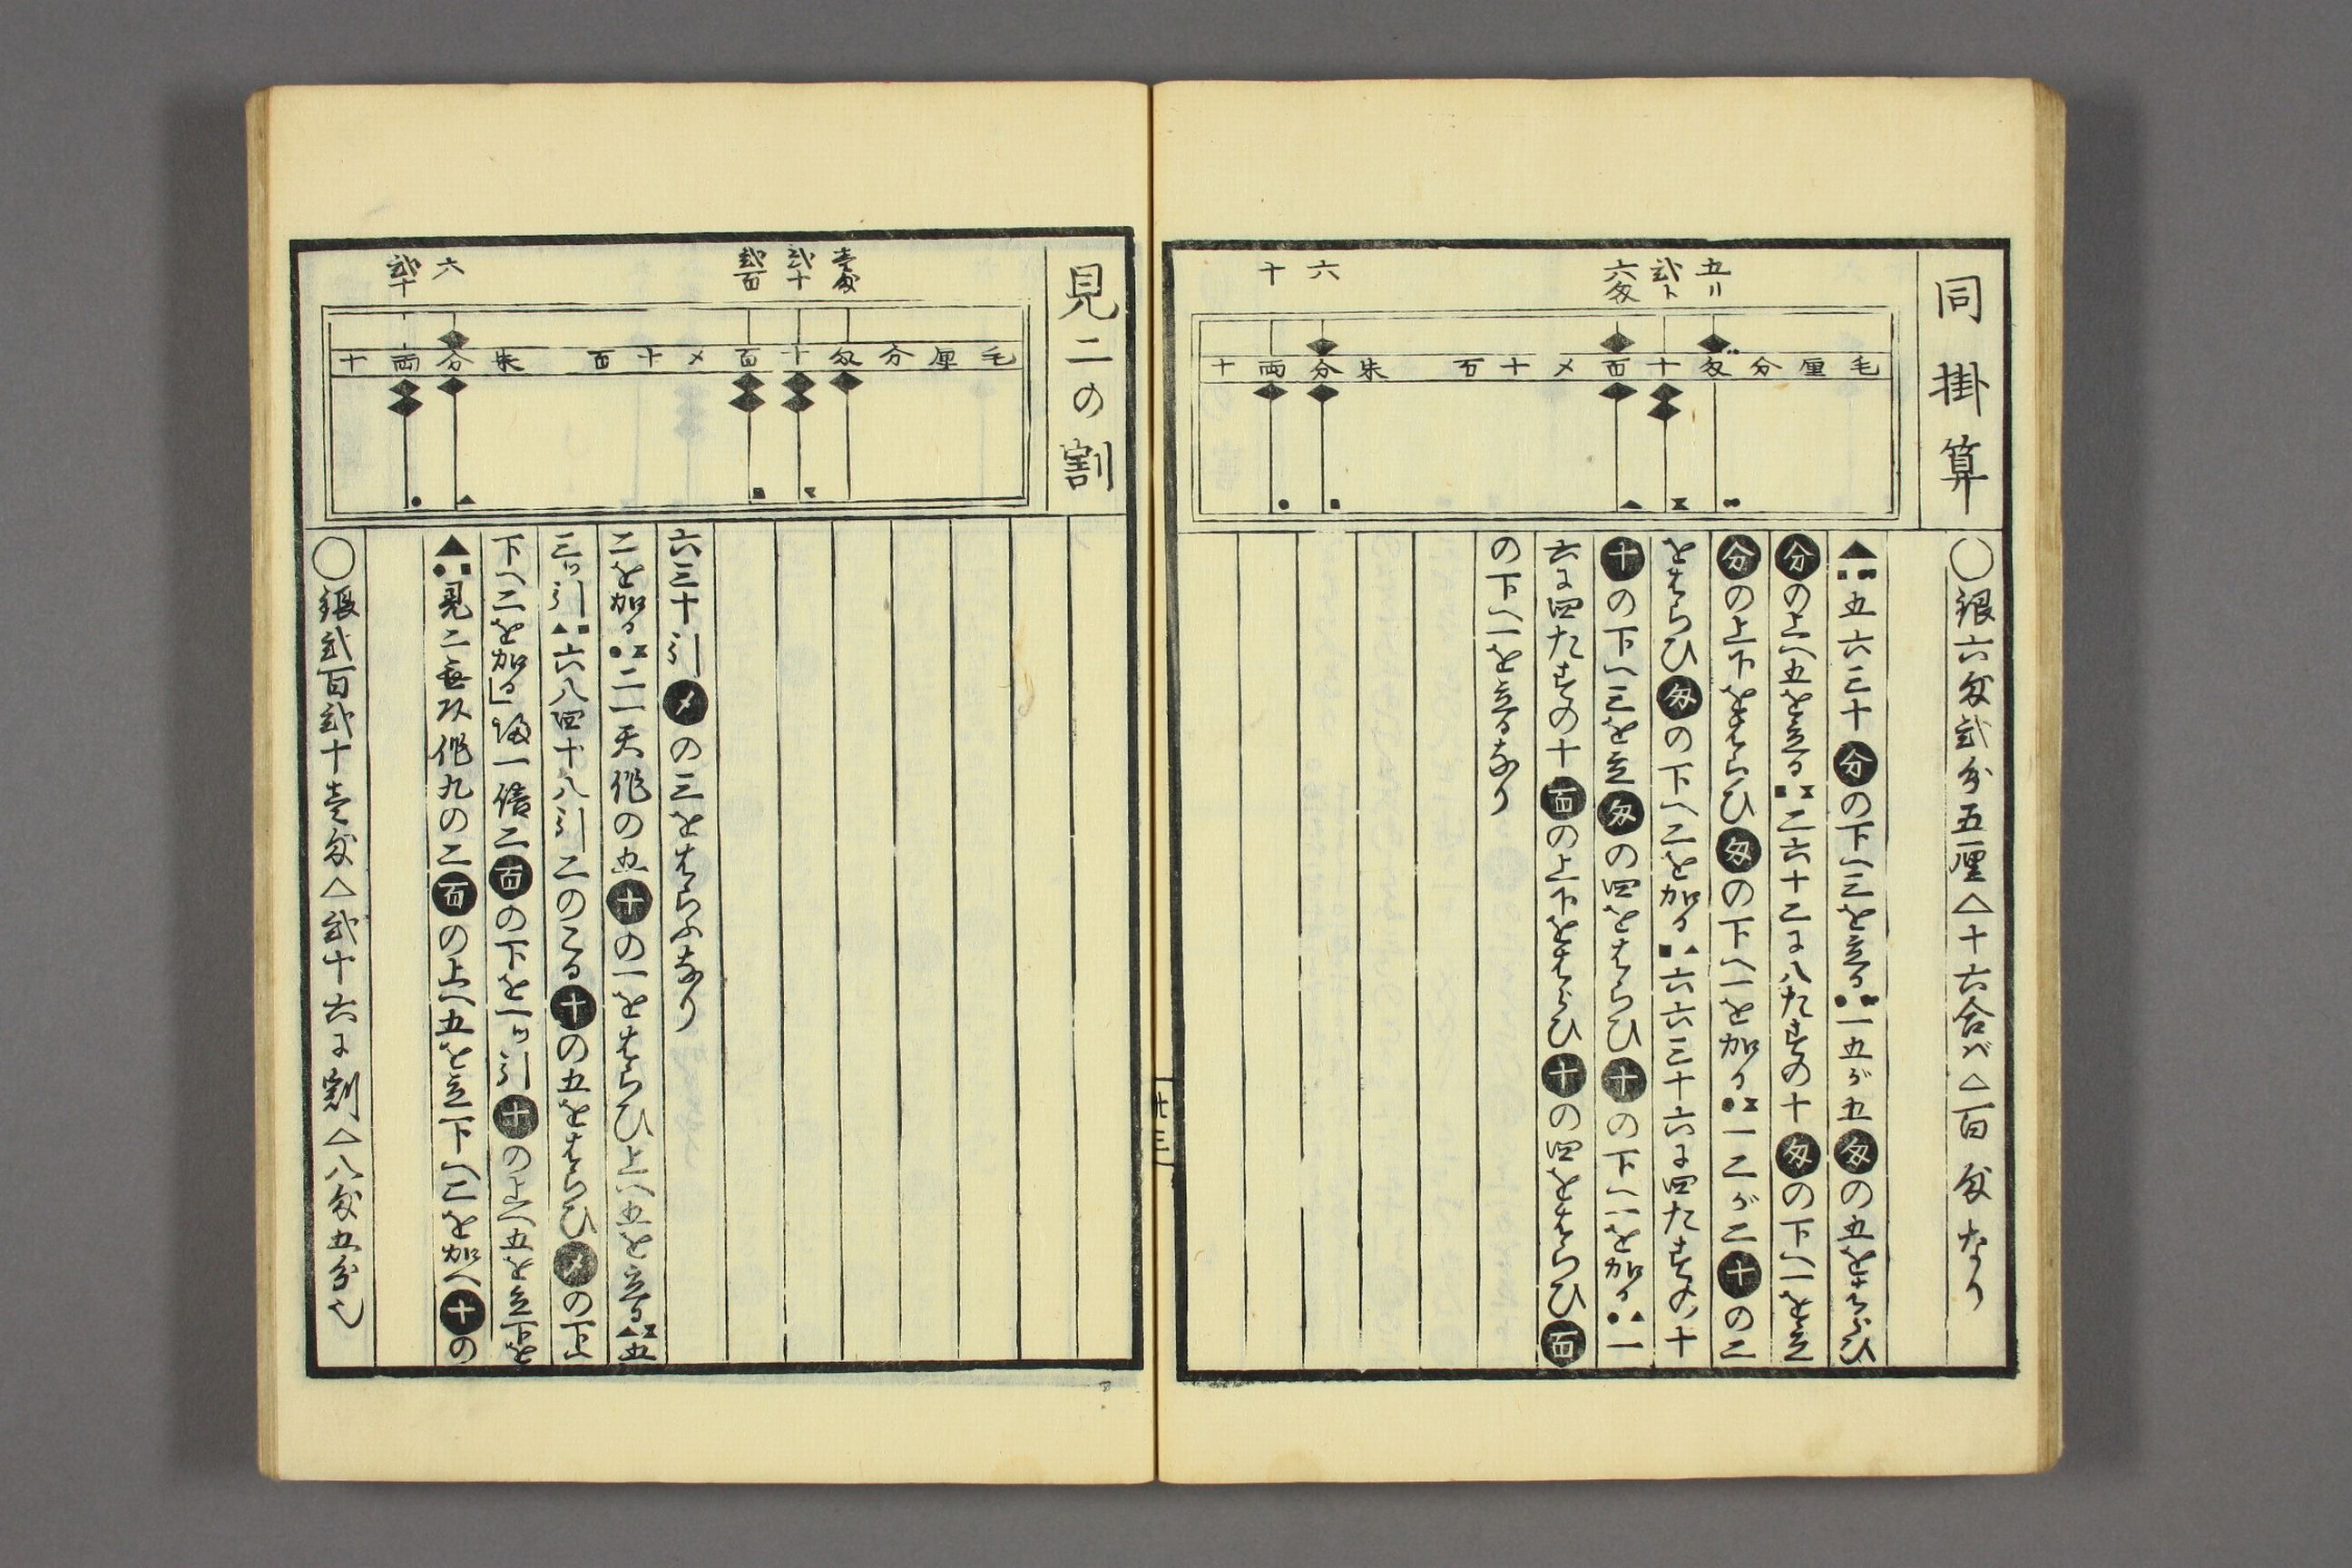 同掛算
五リ
弐ト
六匁
六
十
毛厘分匁十百〆十百 朱分両十
〇銀六匁弐分五厘△十六合バ△百匁なり
▲■五六三十分の下へ三を立る●一五が五匁の五をはらひ
分の上へ五を立る■二六十二に八たすの十匁の下へ一を立
分の上下をはらひ匁の下へ一を加る●一二が二十の二
をはらひ匁の下へ二を加る■▲六六三十六に四たすの十
十の下へ三を立匁の四をはらひ十の下へ一を加る●▲一
六に四たすの十百の上下をはらひ十の四をはらひ百
の下へ一を立るなり
七三
見二の割
壱匁
弐十
弐百
六
弐十
毛厘分匁十百〆十百 朱分両十
〇銀弐百弐十壱匁△弐十六に割△八匁五分也
▲●■見二無頭作九の二百の上へ五を立下へ二を加へ十の
下へ二を加る」帰一倍二百の下を一ツ引十の上へ五を立下を
三ツ引▲■六八四十八引二のこる十の五をはらひ〆の下へ
二を加る●二一天作の五十の一をはらひ上へ五を立る▲五
六三十引〆の三をはらふなり